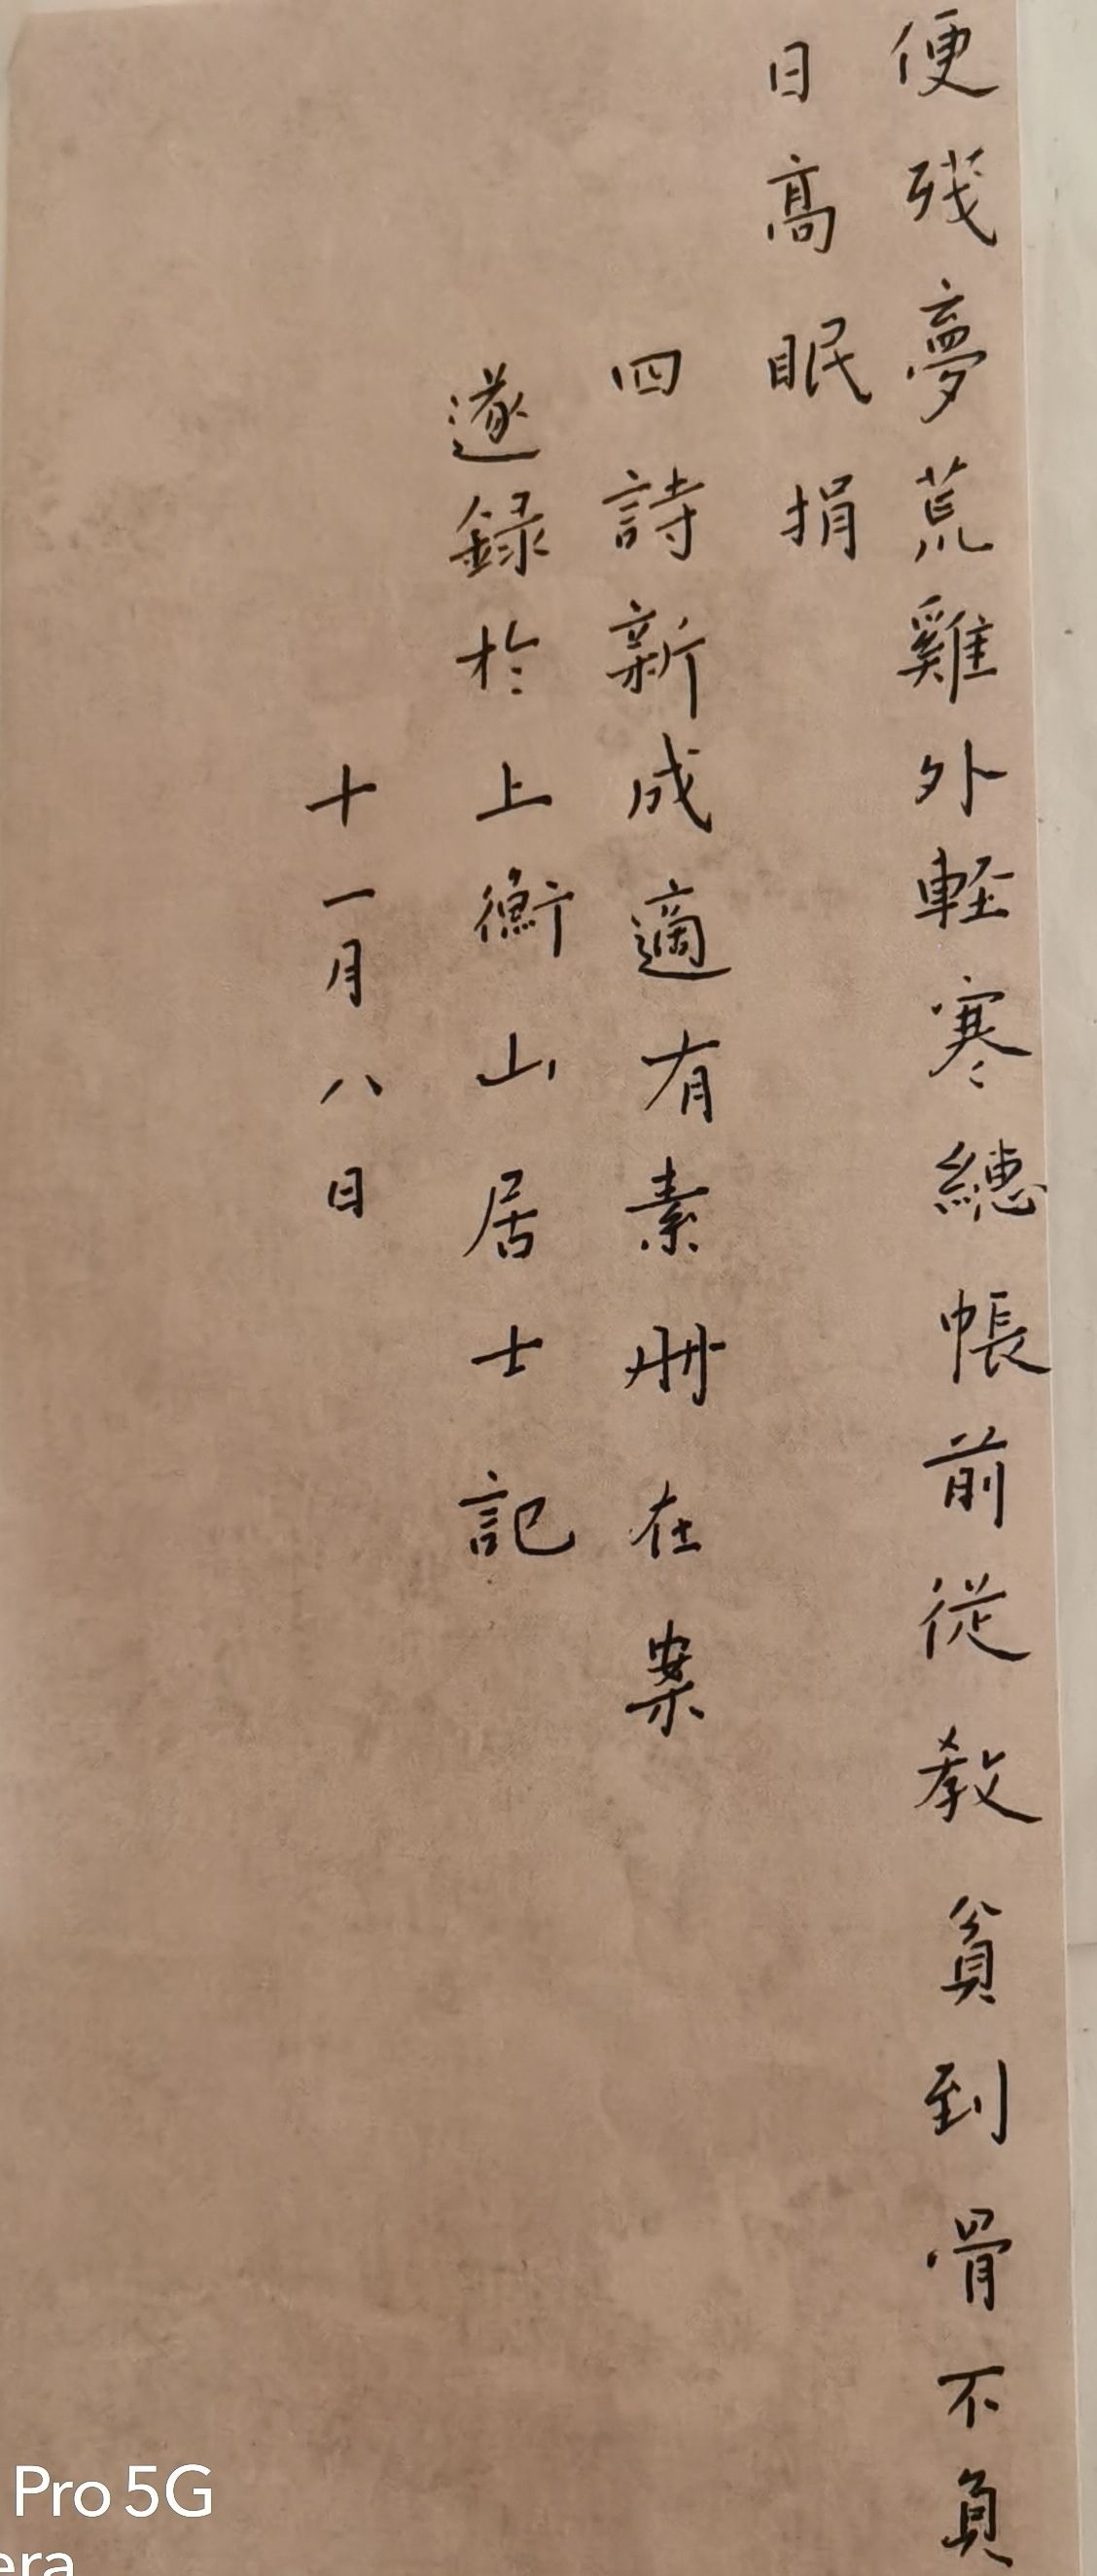 便残夢荒雞外軽寒繐帳前従教貧到骨不負
日高眠捐
四詩新成適有素册在案
遂録於上衡山居士記
十一月八日
Pro 5G
era